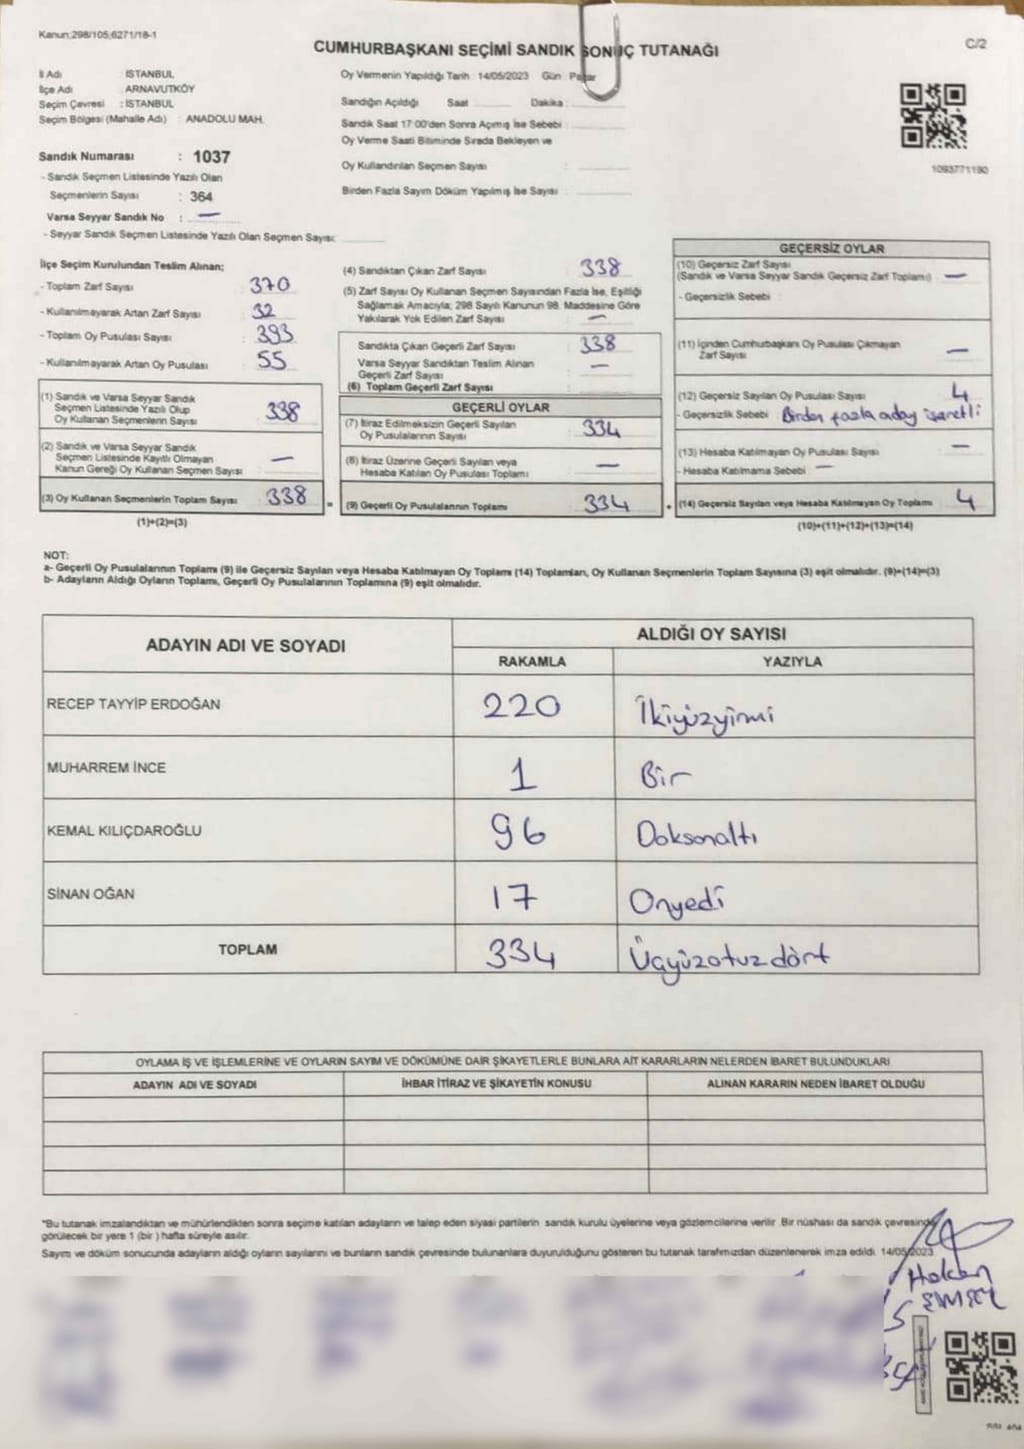 Kanun;298/105;6271/18-1
CUMHURBAŞKANI SEÇİMİ SANDIK SONUÇ TUTANAĞI
C/2
İl Adı : İSTANBUL
İlçe Adı : ARNAVUTKÖY
Seçim Çevresi : İSTANBUL
Seçim Bölgesi (Mahalle Adı) : ANADOLU MAH.
Sandık Numarası : 1037
- Sandık Seçmen Listesinde Yazılı Olan
Seçmenlerin Sayısı : 364
Varsa Seyyar Sandık No : —
- Seyyar Sandık Seçmen Listesinde Yazılı Olan Seçmen Sayısı:
Oy Vermenin Yapıldığı Tarih : 14/05/2023 Gün : Pazar
Sandığın Açıldığı Saat Dakika :
Sandık Saat 17:00'den Sonra Açımış İse Sebebi :
Oy Verme Saati Bitiminde Sırada Bekleyen ve
Oy Kullandırılan Seçmen Sayısı :
Birden Fazla Sayım Döküm Yapılmış İse Sayısı :
1093771190
İlçe Seçim Kurulundan Teslim Alınan;
- Toplam Zarf Sayısı : 370
- Kullanılmayarak Artan Zarf Sayısı : 32
- Toplam Oy Pusulası Sayısı : 393
- Kullanılmayarak Artan Oy Pusulası : 55
(1) Sandık ve Varsa Seyyar Sandık
Seçmen Listesinde Yazılı Olup
Oy Kullanan Seçmenlerin Sayısı : 338
(2) Sandık ve Varsa Seyyar Sandık
Seçmen Listesinde Kayıtlı Olmayan
Kanun Gereği Oy Kullanan Seçmen Sayısı : —
(3) Oy Kullanan Seçmenlerin Toplam Sayısı : 338
(1)+(2)=(3)
(4) Sandıktan Çıkan Zarf Sayısı : 338
(5) Zarf Sayısı Oy Kullanan Seçmen Sayısından Fazla İse, Eşitliği
Sağlamak Amacıyla; 298 Sayılı Kanunun 98. Maddesine Göre
Yakılarak Yok Edilen Zarf Sayısı : —
Sandıkta Çıkan Geçerli Zarf Sayısı : 338
Varsa Seyyar Sandıktan Teslim Alınan
Geçerli Zarf Sayısı : —
(6) Toplam Geçerli Zarf Sayısı :
GEÇERLİ OYLAR
(7) İtiraz Edilmeksizin Geçerli Sayılan
Oy Pusulalarının Sayısı : 334
(8) İtiraz Üzerine Geçerli Sayılan veya
Hesaba Katılan Oy Pusulası Toplamı : —
= (9) Geçerli Oy Pusulalarının Toplamı : 334
GEÇERSİZ OYLAR
(10) Geçersiz Zarf Sayısı
(Sandık ve Varsa Seyyar Sandık Geçersiz Zarf Toplamı) : —
- Geçersizlik Sebebi :
(11) İçinden Cumhurbaşkanı Oy Pusulası Çıkmayan
Zarf Sayısı : —
(12) Geçersiz Sayılan Oy Pusulası Sayısı : 4
- Geçersizlik Sebebi : Birden fazla aday işaretli
(13) Hesaba Katılmayan Oy Pusulası Sayısı : —
- Hesaba Katılmama Sebebi : —
+ (14) Geçersiz Sayılan veya Hesaba Katılmayan Oy Toplamı : 4
(10)+(11)+(12)+(13)=(14)
NOT:
a- Geçerli Oy Pusulalarının Toplamı (9) ile Geçersiz Sayılan veya Hesaba Katılmayan Oy Toplamı (14) Toplamları, Oy Kullanan Seçmenlerin Toplam Sayısına (3) eşit olmalıdır. (9)+(14)=(3)
b- Adayların Aldığı Oyların Toplamı, Geçerli Oy Pusulalarının Toplamına (9) eşit olmalıdır.
ADAYIN ADI VE SOYADI
ALDIĞI OY SAYISI
RAKAMLA YAZIYLA
RECEP TAYYİP ERDOĞAN 220 İkiyüzyirmi
MUHARREM İNCE 1 Bir
KEMAL KILIÇDAROĞLU 96 Doksanaltı
SİNAN OĞAN 17 Onyedi
TOPLAM 334 Üçyüzotuzdört
OYLAMA İŞ VE İŞLEMLERİNE VE OYLARIN SAYIM VE DÖKÜMÜNE DAİR ŞİKAYETLERLE BUNLARA AİT KARARLARIN NELERDEN İBARET BULUNDUKLARI
ADAYIN ADI VE SOYADI İHBAR İTİRAZ VE ŞİKAYETİN KONUSU ALINAN KARARIN NEDEN İBARET OLDUĞU
"Bu tutanak imzalandıktan ve mühürlendikten sonra seçime katılan adayların ve talep eden siyasi partilerin sandık kurulu üyelerine veya gözlemcilerine verilir. Bir nüshası da sandık çevresinde
görülecek bir yere 1 (bir) hafta süreyle asılır.
Sayım ve döküm sonucunda adayların aldığı oyların sayılarını ve bunların sandık çevresinde bulunanlara duyurulduğunu gösteren bu tutanak tarafımızdan düzenlenerek imza edildi. 14/05/2023
Hakan